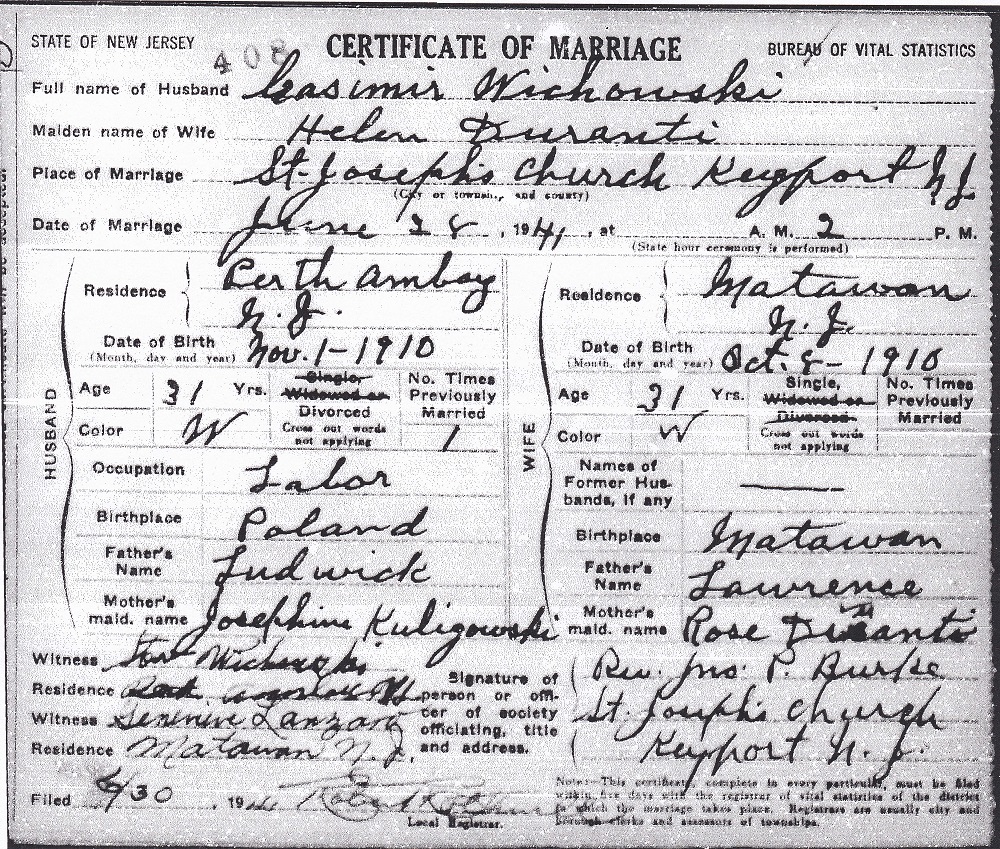 STATE OF NEW JERSEY 408 CERTIFICATE OF MARRIAGE BUREAU OF VITAL STATISTICS
Full name of Husband Casimir Wichowski
Maiden name of Wife Helen Duranti
Place of Marriage St. Joseph's Church Keyport N.J.
(City or township, and county)
Date of Marriage June 28, 1941, at A. M. 2 P. M.
(State hour ceremony is performed)
HUSBAND
Residence Perth Amboy
N. J.
Date of Birth
(Month, day and year) Nov. 1 - 1910
Age 31 Yrs. Single,
Widowed or
Divorced
Cross out words
not applying
No. Times
Previously
Married
1
Color W
Occupation Labor
Birthplace Poland
Father's
Name Ludwick
Mother's
maid. name Josephine Kuligowski
WIFE
Residence Matawan
N. J.
Date of Birth
(Month, day and year) Oct. 8 - 1910
Age 31 Yrs. Single,
Widowed or
Divorced
Cross out words
not applying
No. Times
Previously
Married
Color W
Names of
Former Hus-
bands, if any
Birthplace Matawan
Father's
Name Lawrence
Mother's
maid. name Rose
Witness Wichowski
Residence
Witness Lanzaro
Residence Matawan N. J.
Signature of
person or offi-
cer of society
officiating, title
and address.
Rev. Jno. P. Burke
St. Joseph's Church
Keyport N. J.
Filed 6/30, 19
Local Registrar.
Note:—This certificate, complete in every particular, must be filed
within five days with the registrar of vital statistics of the district
in which the marriage takes place. Registrars are usually city and
borough clerks and assessors of townships.